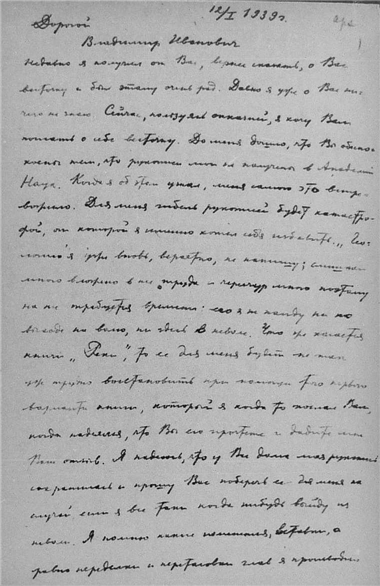 12/I 1939 г.
Дорогой
Владимир Иванович
Недавно я получил от Вас, вернее сказать, о Вас
весточку и был этому очень рад. Давно я уже о Вас ни-
чего не знаю. Сейчас, пользуясь оказией, я хочу Вам
послать о себе весточку. До меня дошло, что Вы обеспо-
коены тем, что рукописи мои не получены в Академии
Наук. Когда я об этом узнал, меня самого это встре-
вожило. Для меня гибель рукописей будет катастро-
фой, от которой я именно хотел себя избавить.
я уже вновь, вероятно, не напишу; слишком
много вложено в нее труда и чересчур много поэтому
на нее требуется времени: его я не найду ни по
выходе на волю, ни здесь в неволе. Что же касается
книги „Реки", то ее для меня будет не так
уже трудно восстановить при помощи того первого
варианта книги, который я когда то послал Вам,
когда надеялся, что Вы его прочтете и дадите мне
Ваш отзыв. Я надеюсь, что у Вас дома моя рукопись
сохранилась и прошу Вас поберечь ее для меня на
случай, если я все таки когда нибудь выйду из
неволи. Я помню какие изменения, вставки, а
равно переделки и перестановки глав я производил